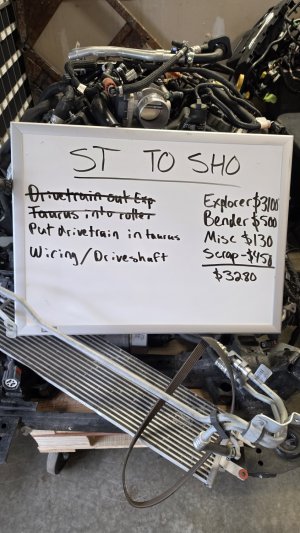 ST TO SHO
Drivetrain out Exp
Taurus into roller
Put drivetrain in taurus
Wiring/Driveshaft
Explorer $3100
Bender $500
Misc $130
Scrap -$450
$3280